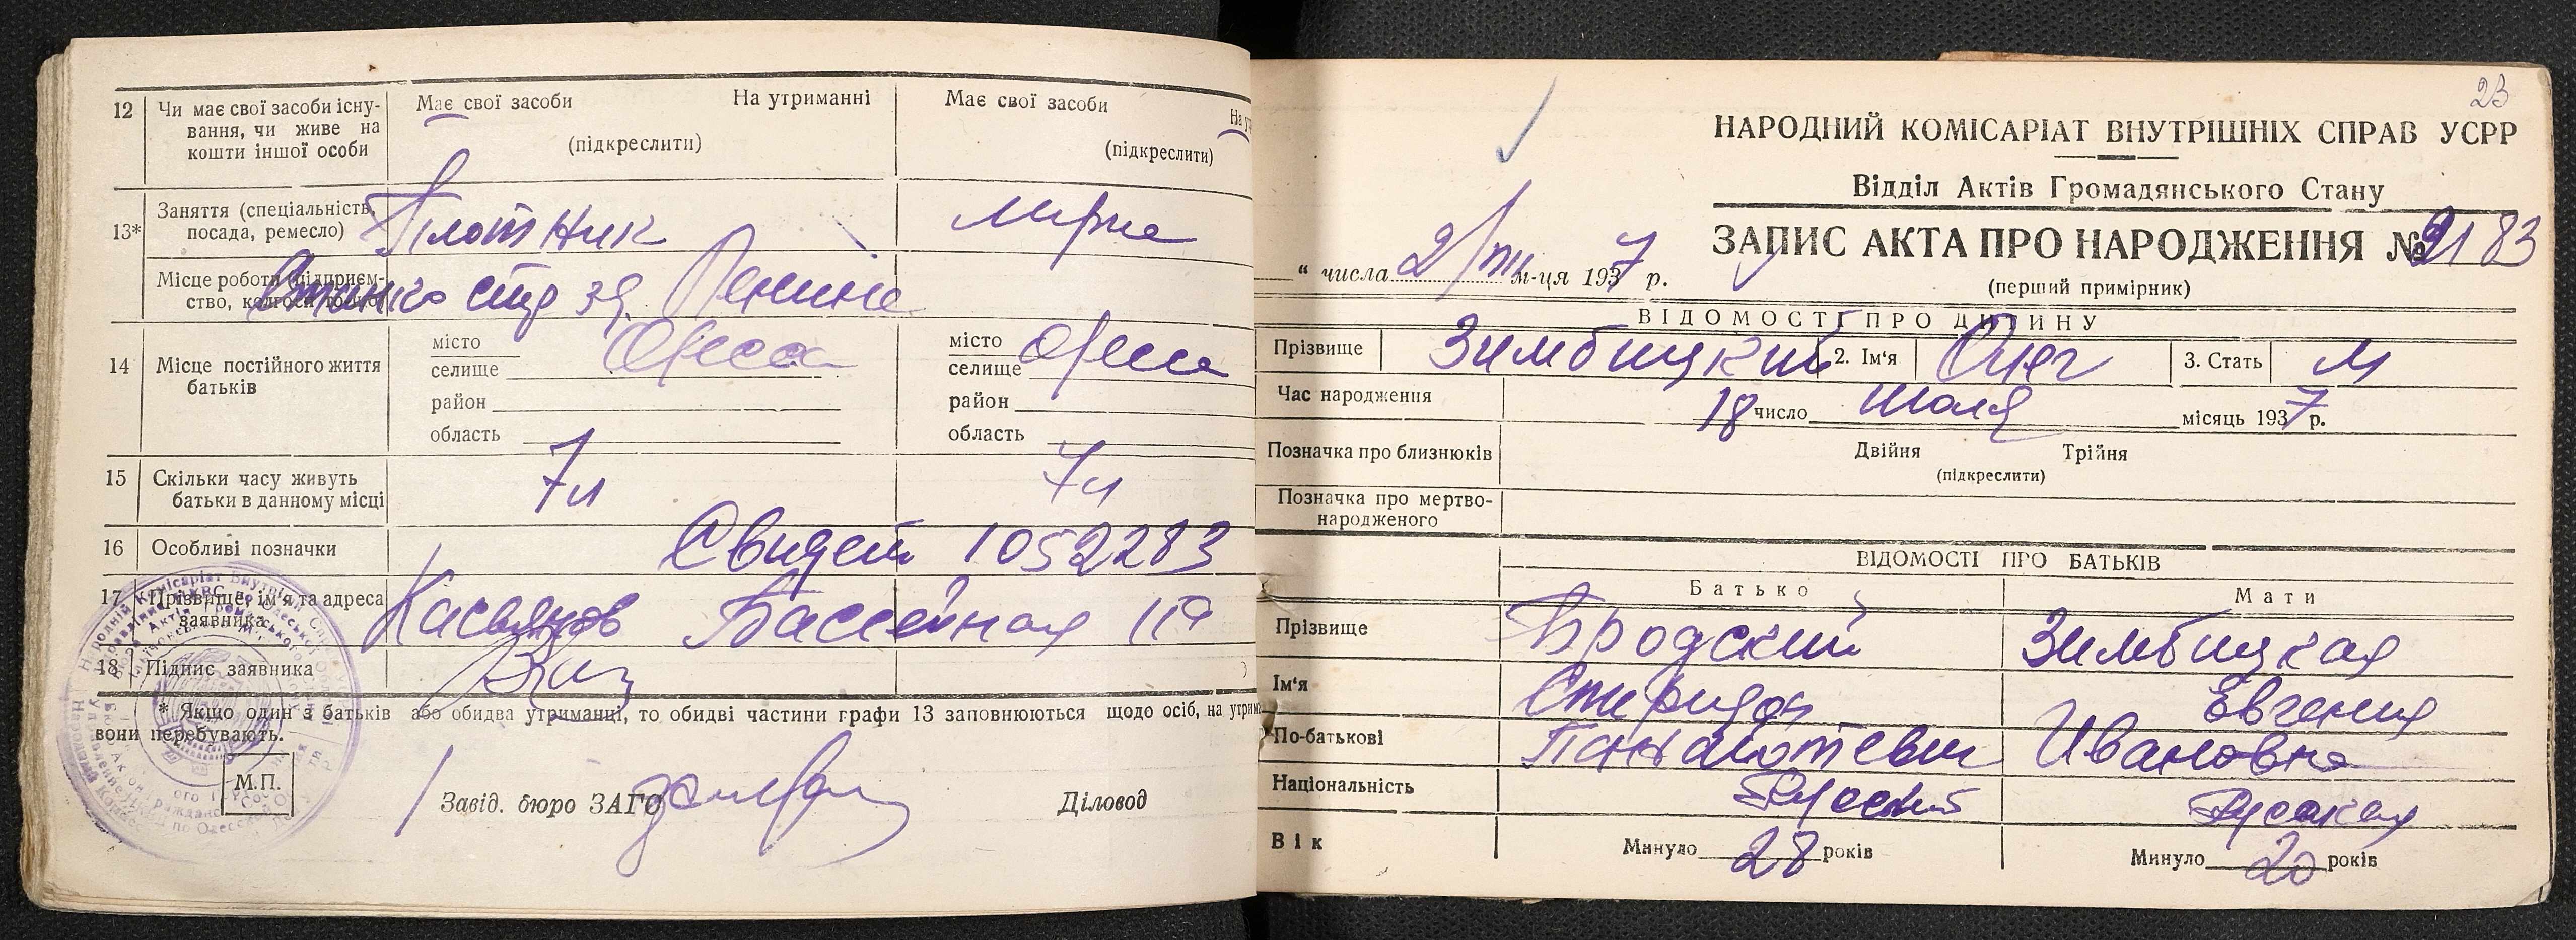 12 Чи має свої засоби існу-
вання, чи живе на
кошти іншої особи
Має свої засоби На утриманні
(підкреслити)
Має свої засоби
(підкреслити)
13* Заняття (спеціальність,
посада, ремесло)
Плотник
Місце роботи (підприєм-
ство, колгосп тощо)
стр Ленина
14 Місце постійного життя
батьків
місто
селище Одесса
район
область
місто
селище Одесса
район
область
15 Скільки часу живуть
батьки в данному місці
7л 7л
16 Особливі позначки
Свидет 1052283
17 Прізвище, ім'я та адреса
заявника
Касьянов Бассейная
18 Підпис заявника
* Якщо один з батьків або обидва утриманці, то обидві частини графи 13 заповнюються щодо осіб, на утрим
вони перебувають.
М.П.
Завід. бюро ЗАГС Діловод
23
НАРОДНИЙ КОМІСАРІАТ ВНУТРІШНІХ СПРАВ УСРР
Відділ Актів Громадянського Стану
ЗАПИС АКТА ПРО НАРОДЖЕННЯ № 2183
(перший примірник)
" числа 2/VIII м-ця 1937 р.
ВІДОМОСТІ ПРО ДИТИНУ
Прізвище Зимбицкий 2. Ім'я Олег 3. Стать М
Час народження 18 число Июля місяць 1937 р.
Позначка про близнюків Двійня Трійня
(підкреслити)
Позначка про мертво-
народженого
ВІДОМОСТІ ПРО БАТЬКІВ
Батько Мати
Прізвище Бродский Зимбицкая
Ім'я Спиридон Евгения
По-батькові Панайотевич Ивановна
Національність Русский Русская
Вік Минуло 28 років Минуло 20 років